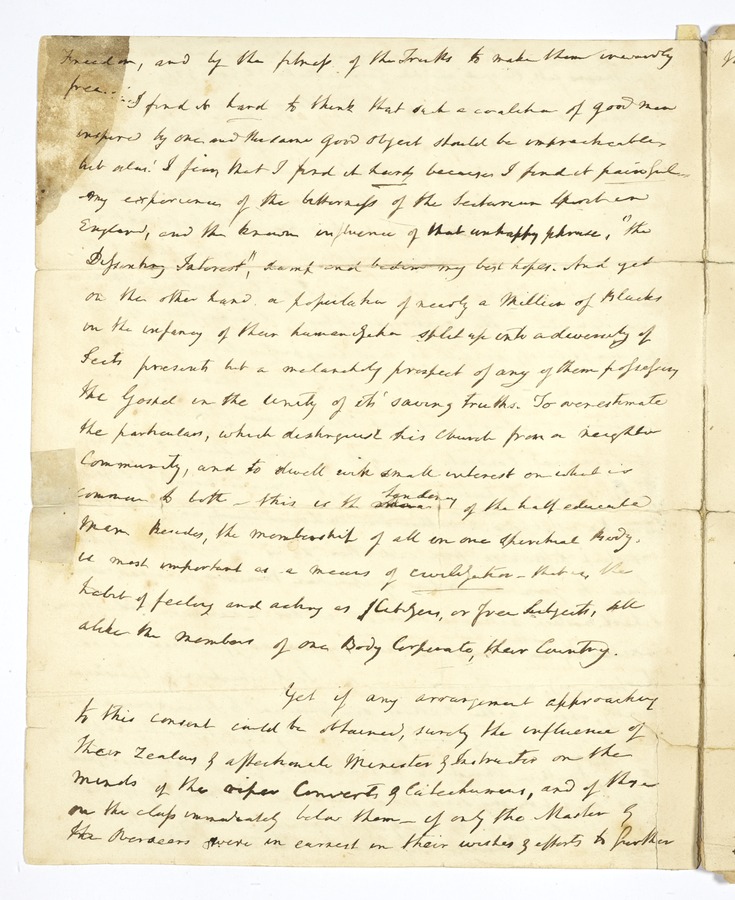 Freedom, and by the fitness of the Truths to make them inwardly
free. – I find it hard to think that such a coalition of good men
inspired by one and the same good object should be impracticable,
but alas! I fear, that I find it hard, because I find it painful –
my experience of the bitterness of the Sectarian Spirit in
England, and the known influence of that unhappy phrase, "the
Dissenting Interest", damp and bedim my best hopes. And yet
on the other hand a population of nearly a Million of Blacks
in the infancy of their humanization split up into a diversity of
Sects presents but a melancholy prospect of any of them possessing
the Gospel in the Unity of it's saving truths. To overestimate
the particulars, which distinguish his Church from a neighbor
Community, and to dwell with small interest on what is
common to both – this is the tendency of the half educated
Man. Besides, the membership of all in one Spiritual Body,
is most important as a means of civilization – that is, the
habit of feeling and acting as Citizens, or free Subjects, all
alike the members of one Body Corporate, their Country.
Yet if any arrangement approaching
to this consent could be obtained, surely the influence of
their Zealous & affectionate Minister & Instructor on the
minds of the riper Converts & Catechumens, and of these
on the class immediately below them – if only the Master &
the Overseers were in earnest in their wishes & efforts to further